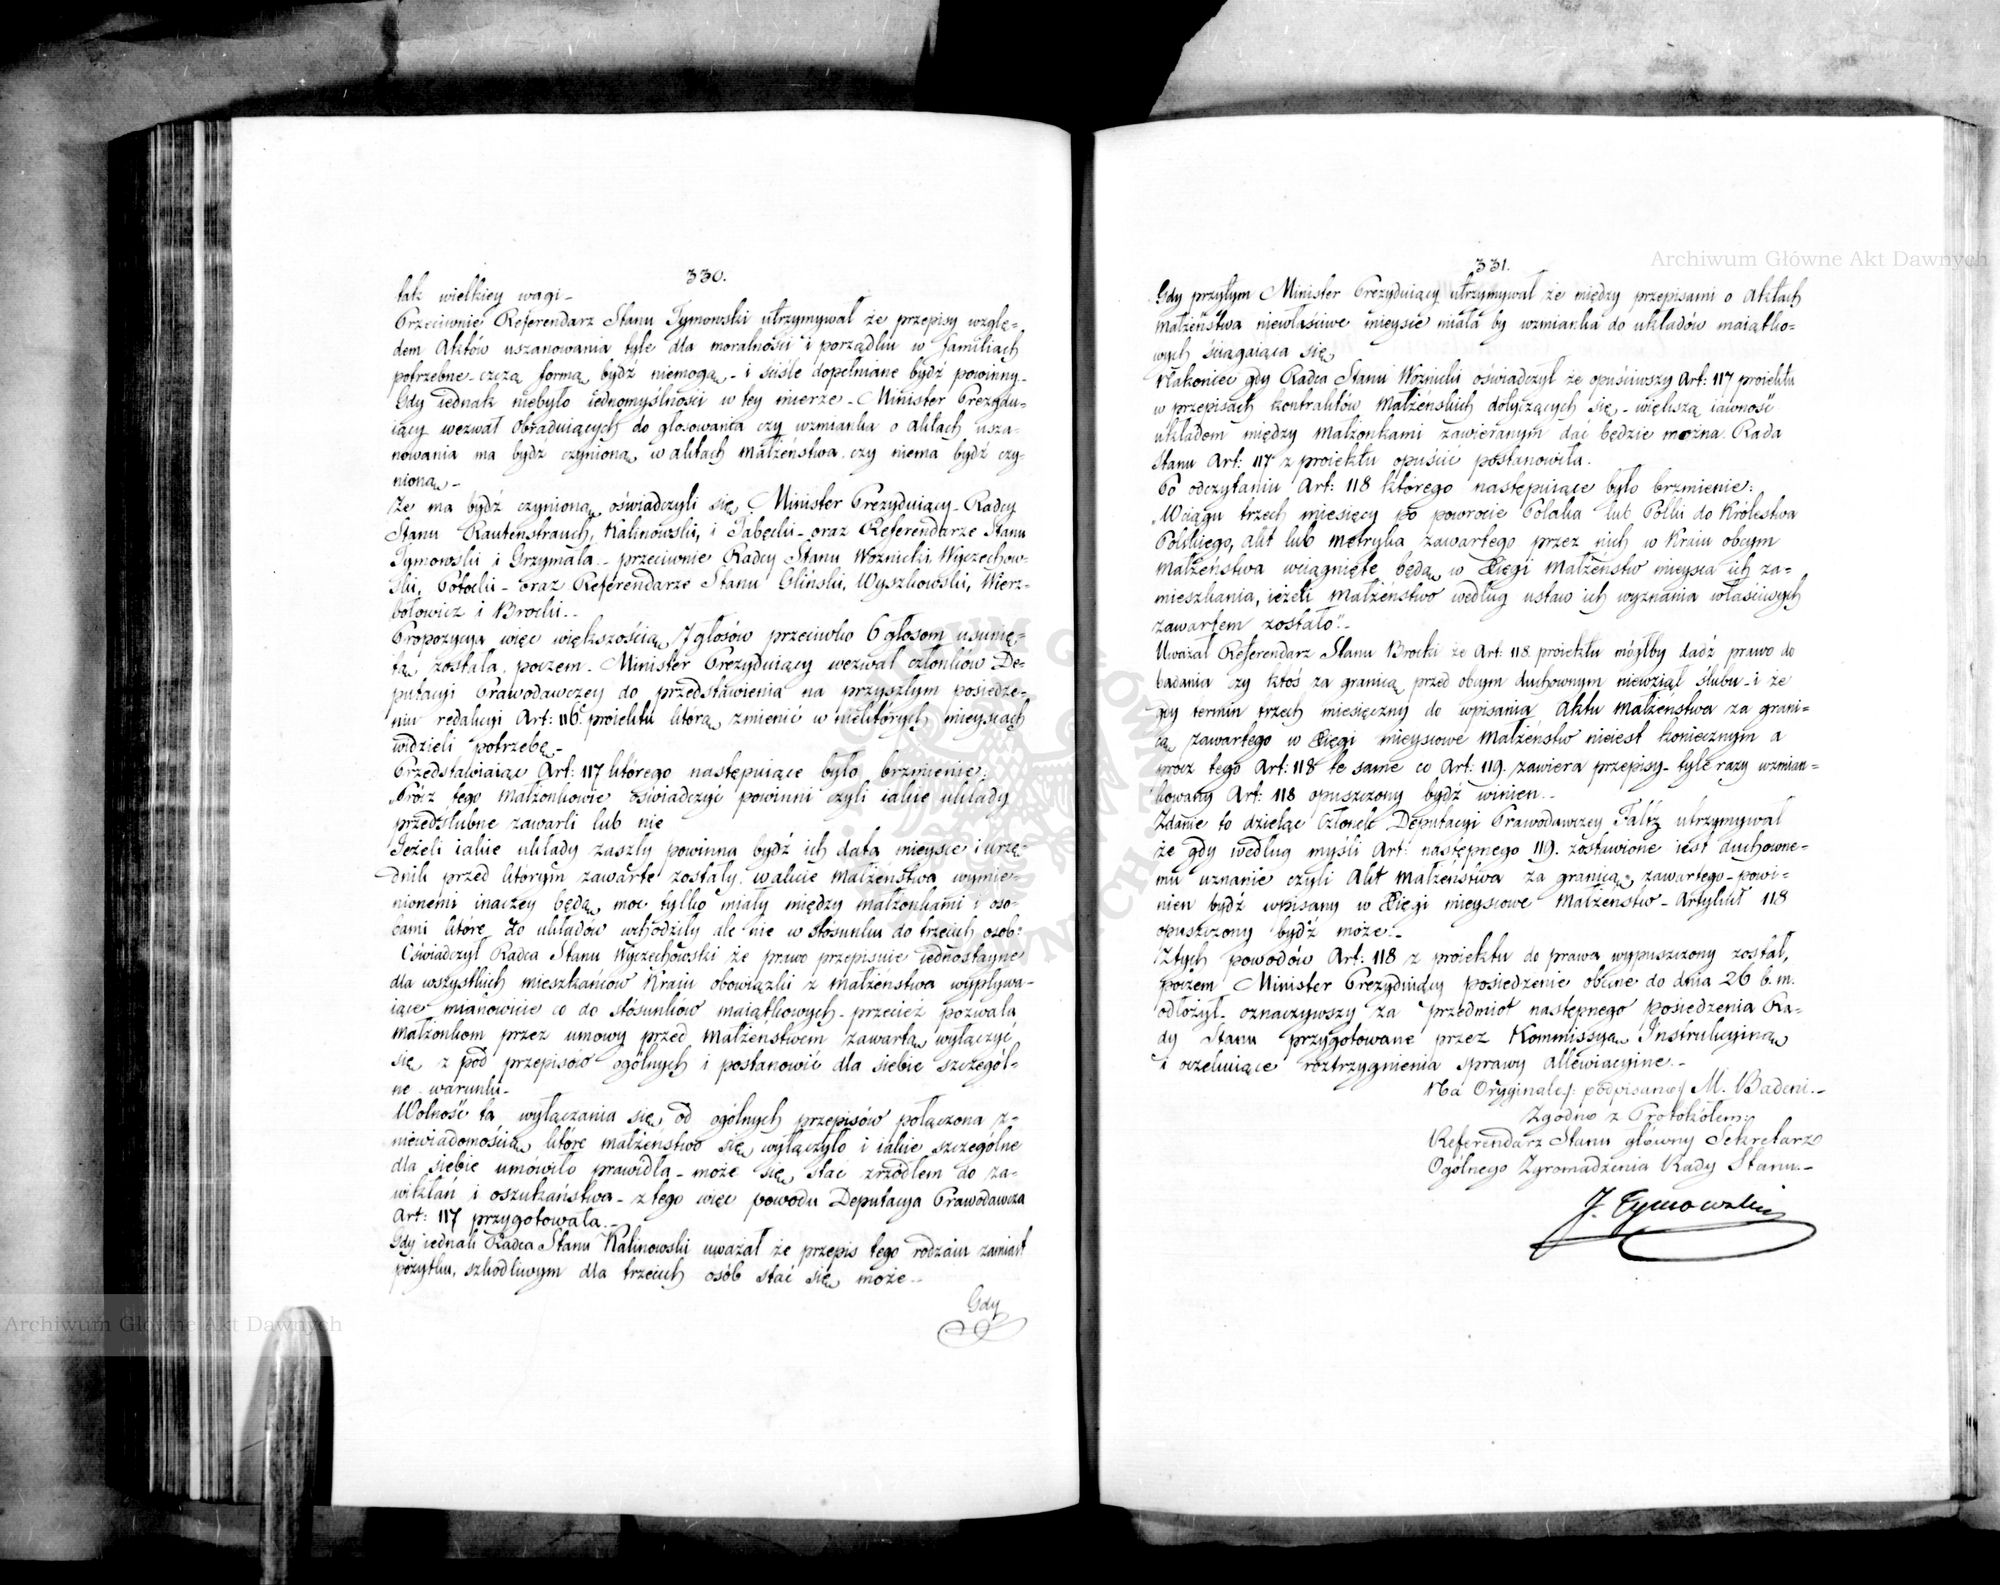 330.
tak wielkiey wagi –
Przeciwnie Referendarz Stanu Tymowski utrzymywał że przepisy wzglę-
dem Aktów uszanowania tyle dla moralności i porządku w familiach
potrzebne – czczą formą bydź niemogą – i ściśle dopełniane bydź powinny –
Gdy iednak niebyło iednomyślności w tey mierze – Minister Prezydu-
iący wezwał Obraduiących do głosowania czy wzmianka o aktach usza-
nowania ma bydź czynioną w aktach Małżeństwa, czy niema bydź czy-
nioną –
Że ma bydź czynioną, oświadczyli się, Minister Prezyduiący – Radcy
Stanu Rautenstrauch, Kalinowski, i Tabęcki – oraz Referendarze Stanu
Tymowski i Grzymała – przeciwnie Radcy Stanu Woźnicki, Wyczechow-
ski, Potocki – oraz Referendarze Stanu Gliński, Wyszkowski, Wierz-
bołowicz i Brocki. –
Propozycya więc większością 7 głosów przeciwko 6 głosom usunię-
tą została, poczem – Minister Prezyduiący wezwał członków De-
putacyi Prawodawczey do przedstawienia na przyszłym posiedze-
niu redakcyi Art: 116. proiektu którą zmienić w niektórych mieyscach
widzieli potrzebę –
Przedstawiaiąc Art: 117 którego następuiące było brzmienie:
„Prócz tego Małżonkowie oświadczyć powinni czyli iakie układy
przedślubne zawarli lub nie
Jeżeli iakie układy zaszły powinna bydź ich data mieysce i urzę-
dnik przed którym zawarte zostały, w akcie Małżeństwa wymie-
nionemi inaczey będą moc tylko miały między małżonkami i oso-
bami które do układów wchodziły ale nie w stosunku do trzecich osób"
Oświadczył Radca Stanu Wyczechowski że prawo przepisuie iednostayne
dla wszystkich mieszkańców Kraiu obowiązki z Małżeństwa wypływa-
iące mianowicie co do stósunków maiątkowych – przecież pozwala
Małżonkom przez umowy przed Małżeństwem zawartą wyłączyć
się z pod przepisów ogólnych i postanowić dla siebie szczegól-
ne warunki –
Wolność ta wyłączania się od ogólnych przepisów połączona z
niewiadomością które małżeństwo się wyłączyło i iakie szczególne
dla siebie umówiło prawidła – może się stać zrzódłem do za-
wikłań i oszukaństwa – z tego więc powodu Deputacya Prawodawcza
Art: 117 przygotowała. –
Gdy iednak Radca Stanu Kalinowski uważał że przepis tego rodzaiu zamiast
pożytku, szkodliwym dla trzecich osób stać się może –
Gdy
331.
Gdy przytym Minister Prezyduiący utrzymywał że między przepisami o Aktach
Małżeństwa niewłaściwe mieysce miała by wzmianka do układów maiątko-
wych ściągaiąca się
Nakoniec gdy Radca Stanu Woźnicki oświadczył że opuściwszy Art: 117 proiektu
w przepisach kontraktów Małżeńskich dotyczących się – większą iawność
układem między Małżonkami zawieranym dać będzie można Rada
Stanu Art: 117 z proiektu opuścić postanowiła.
Po odczytaniu Art: 118 którego następuiące było brzmienie:
„W ciągu trzech miesięcy po powrocie Polaka lub Polki do Królestwa
Polskiego, akt lub metryka zawartego przez nich w Kraiu obcym
Małżeństwa wciągnięte będą w Xięgi Małżeństw mieysca ich za-
mieszkania, ieżeli Małżeństwo według ustaw ich wyznania właściwych
zawartem zostało" –
Uważał Referendarz Stanu Brocki że Art: 118 proiektu mógłby dadź prawo do
badania czy ktoś za granicą przed obcym duchownym niewziął ślubu – i że
gdy termin trzech miesięczny do wpisania Aktu Małżeństwa za grani-
cą zawartego w Xięgi mieyscowe Małżeństw nieiest koniecznym a
procz tego Art: 118 te same co Art: 119. zawiera przepisy – tyle razy wzmian-
kowany Art: 118 opuszczony bydź winien. –
Zdanie to dzieląc Członek Deputacyi Prawodawczey Faltz utrzymywał
że gdy według myśli Art: następnego 119. zostawione iest duchowne-
mu uznanie czyli Akt Małżeństwa za granicą zawartego – powi-
nien bydź wpisany w Xięgi mieyscowe Małżeństw – Artykuł 118
opuszczony bydź może –
Z tych powodów Art: 118 z proiektu do prawa wypuszczony został,
poczem Minister Prezyduiący posiedzenie obecne do dnia 26 b. m.
odłożył – oznaczywszy za przedmiot następnego posiedzenia Ra-
dy Stanu przygotowane przez Kommissyą Instrukcyiną
i oczekuiące roztrzygnienia sprawy allewiacyine. –
Na Oryginale: podpisano: M. Badeni. –
Zgodno z Protokółem:
Referendarz Stanu główny Sekretarz
Ogólnego Zgromadzenia Rady Stanu. –
J. Tymowski
Archiwum Główne Akt Dawnych
Archiwum Główne Akt Dawnych